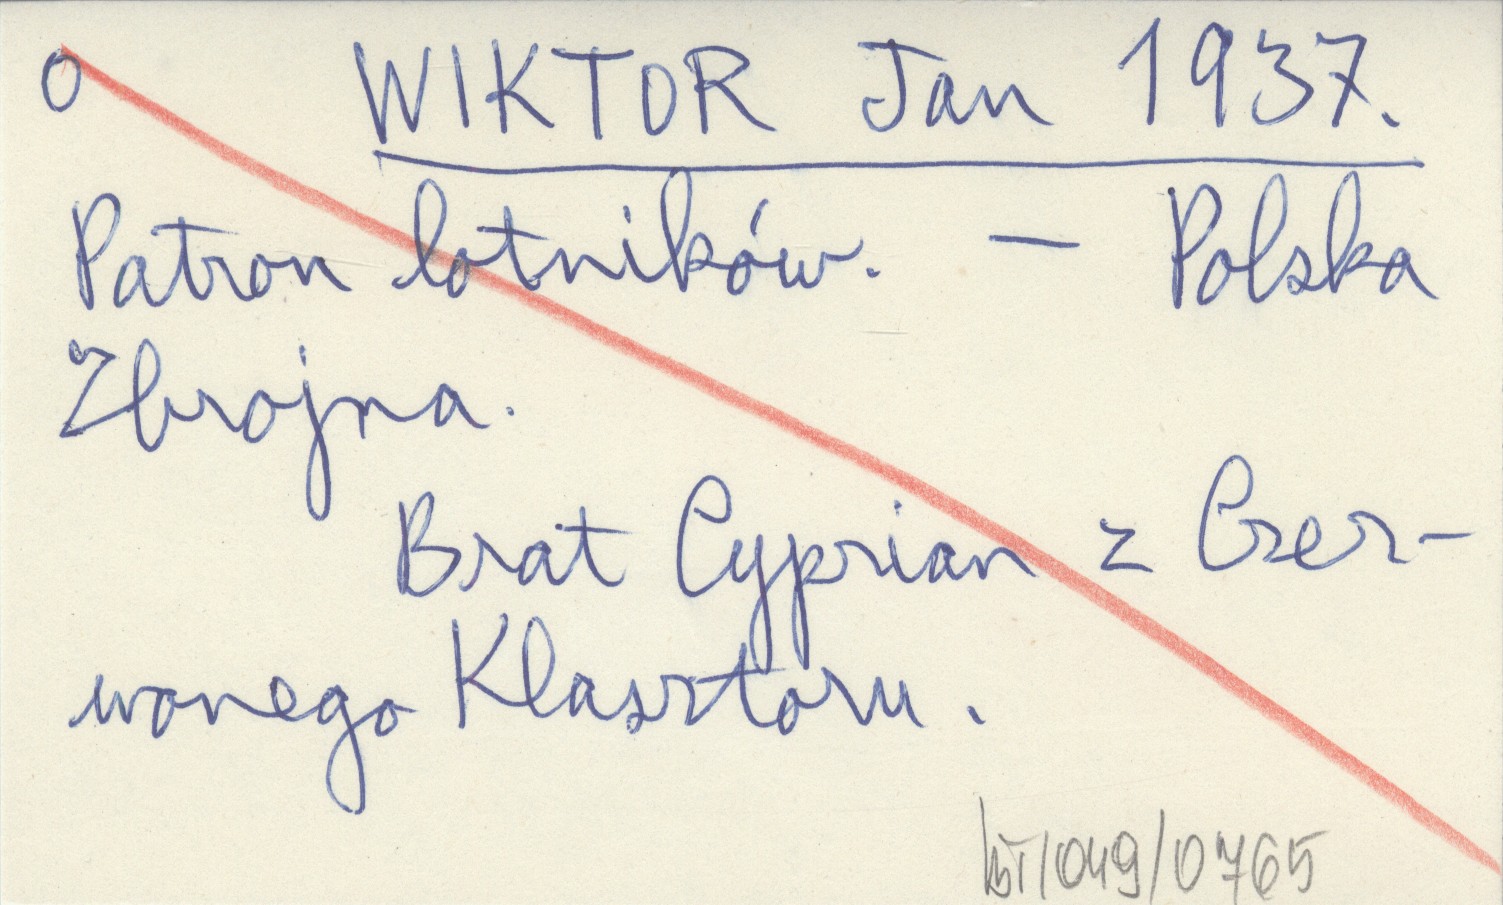 O WIKTOR Jan 1937.
Patron lotników. — Polska
Zbrojna.
Brat Cyprian z Czer-
wonego Klasztoru.
/049/0765